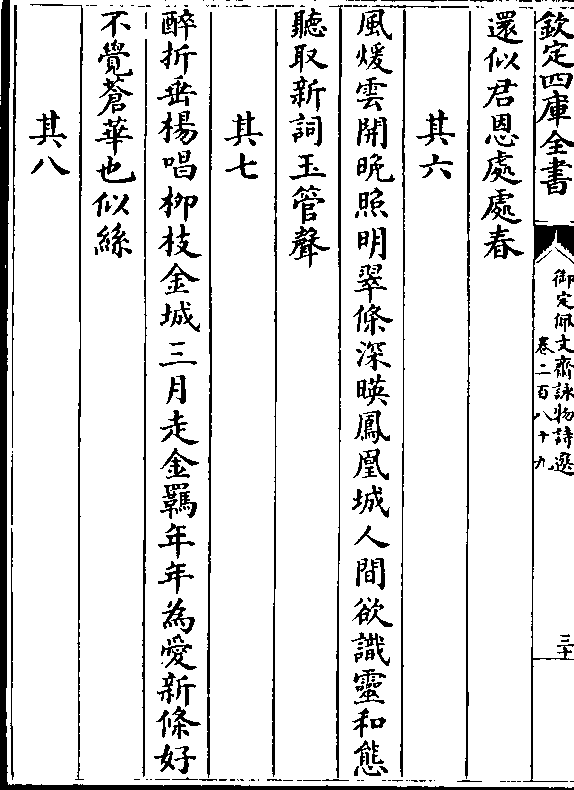 欽定四庫全書
御定佩文齋詠物詩選
卷二百八十九
三十
還似君恩處處春
其六
風煖雲開晩照明翠條深暎鳳凰城人間欲識靈和態
聽取新詞玉管聲
其七
醉折垂楊唱柳枝金城三月走金羈年年為愛新條好
不覺蒼華也似絲
其八